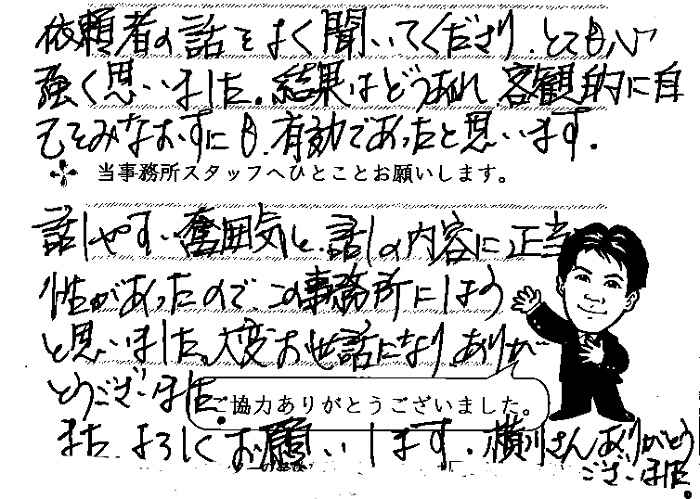 依頼者の話をよく聞いてくださり、とても心
強く思いました。結果はどうあれ、客観的に自
己をみなおすにも、有効であったと思います。
当事務所スタッフへひとことお願いします。
話しやすい雰囲気と、話しの内容に正当
性があったので、この事務所にしよう
と思いました。大変お世話になり、ありが
とうございました。
ご協力ありがとうございました。
また よろしくお願いします。横川さんありがとう
ございました。